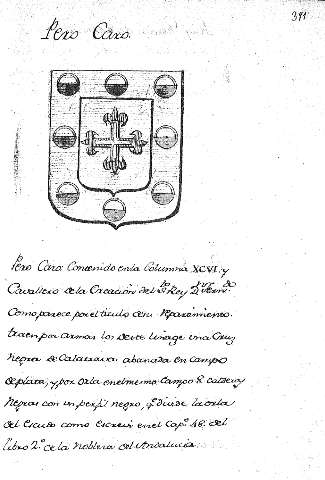 391
Pero Caro.
Pero Caro Contenido en la Columna XCVI. y
Cavallero de la Creacion del Sto. Rey Dn. Ferndo.
Como parece por el titulo de su Reparamiento.
traen por armas los deste linage una Cruz
Negra de Calatrava abanada en Campo
de plata, y por orla en el mesmo Campo 8. calderas
Negras con un perfil negro, qe. divide la orla
del escudo como escrevi en el Capo. 48. del
libro 2o. de la Nobleza del Andalucia.